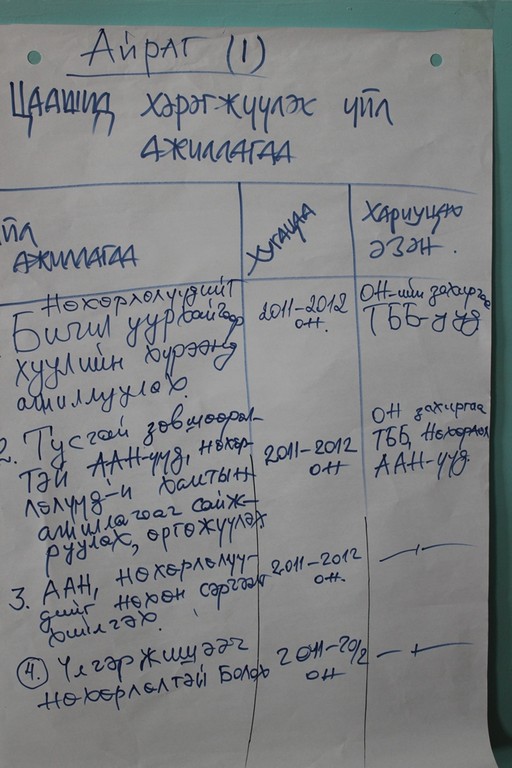 Айраг (1)
Цаашид хэрэгжүүлэх үйл
ажиллагаа
йл
ажиллагаа
Хугацаа
Хариуцах
эзэн.
Нөхөрлөлүүдийг
Бичил уурхайгаар
хуулийн хүрээнд
ажиллуулах.
2011-2012
он.
ОН-ийн захиргаа
ТББ-ууд
2. Тусгай зөвшөөрөл-
тэй ААН-ууд, нөхөр-
лөлүүд-н хамтын
ажиллагааг сайж-
руулах, өргөжүүлэх
2011-2012
он
ОН захиргаа
ТББ, Нөхөрлөл
ААН-ууд
3. ААН, нөхөрлөлүү-
дийг нөхөн сэргээлт
хийлгэх.
2011-2012
он.
4. Үлгэр жишээч
нөхөрлөлтэй болох
2011-2012
он